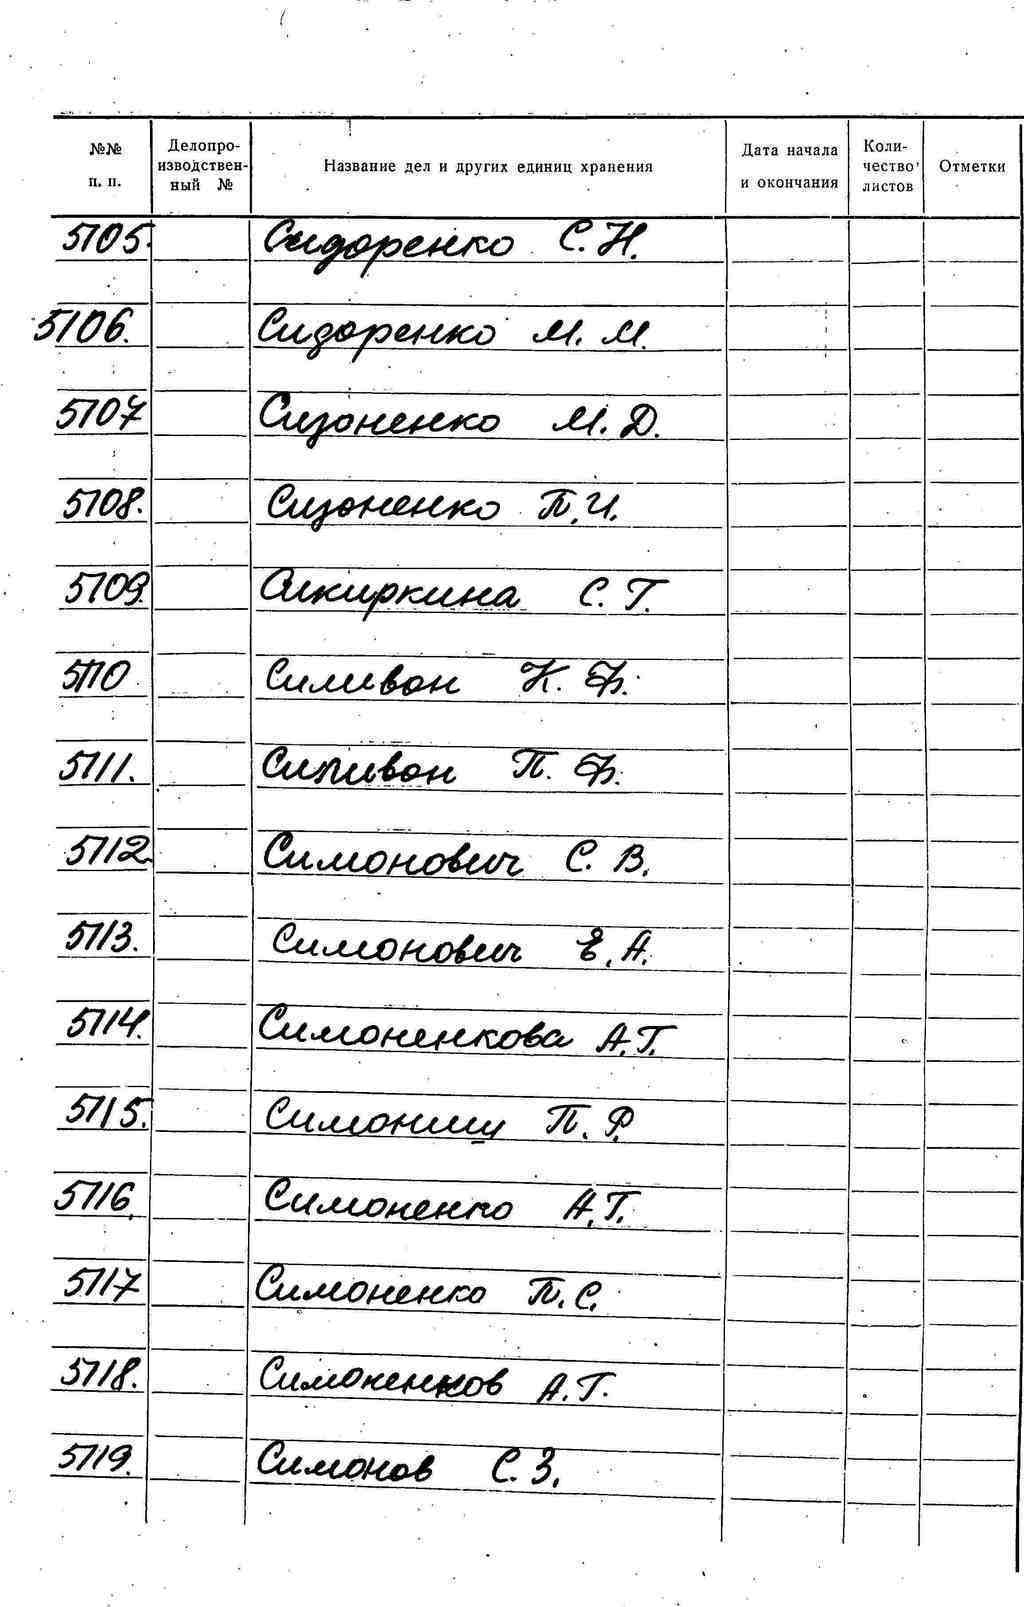 №№ п. п. Делопро-изводствен-ный № Название дел и других единиц хранения Дата начала и окончания Коли-чество листов Отметки
5705. Сидоренко С. Н.
5706. Сидоренко М. М.
5707 Сизоненко М. Д.
5708. Сизоненко П. И.
5709. Сикиркина С. Г.
5710 Силивон К. Ф.
5711. Силивон П. Ф.
5712. Симонович С. В.
5713. Симонович Е. А.
5714. Симоненкова А. Г.
5715. Симониц П. Р.
5716. Симоненко А. Г.
5717 Симоненко П. С.
5718. Симоненков А. Г.
5719. Симонов С. З.